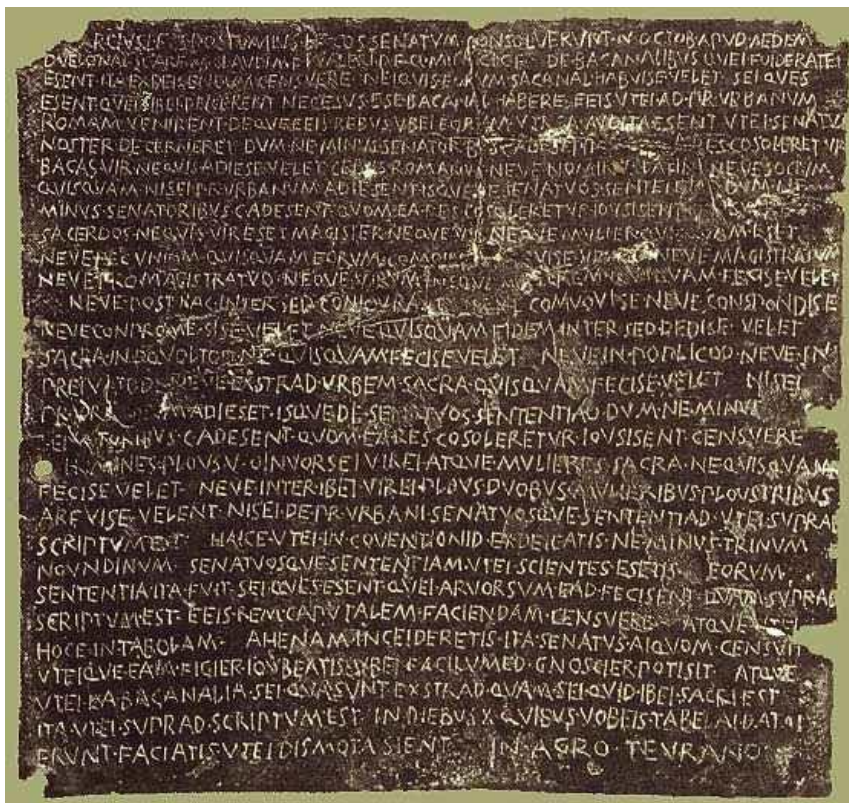 POSTVMIVS·L·F·COS SENATVM CONSOLVERVNT·N·OCTOB·APVD·AEDEM
DVELONAI·SC·ARF·M·CLAVDI·M·F DE·BACANALIBVS·QVEI·FOIDERATEI
ESENT·ITA·EXDEICENDVM·CENSVERE NEIQVIS·EORVM·SACANAL·HABVISE·VELET SEI·QVES
ESENT·QVEI·SIBEI·DEICERENT NECESVS·ESE·BACANAL·HABERE·EEIS·VTEI·AD·PR·VRBANVM
ROMAM·VENIRENT·DEQVE·EEIS·REBVS·VBEI·EORVM·VTR·A·AVDITA·ESENT·VTEI·SENATVS
NOSTER·DECERNERET DVM·NE·MINVS·SENATORBVS·C·ADESENT RES·COSOLERETVR
BACAS·VIR·NEQVIS·ADIESE·VELET CEIVIS·ROMANVS NEVE·NOMINVS·LATINI NEVE·SOCIVM
QVISQVAM·NISEI·PR·VRBANVM·ADIESENT·ISQVE·DE·SENATVOS·SENTENTIAD DVM·NE
MINVS·SENATORIBVS·C·ADESENT·QVOM·EA·RES·COSOLERETVR·IOVSISENT
SACERDOS·NEQVIS·VIR·ESET·MAGISTER·NEQVE·VIR NEQVE·MVLIER·QVISQVAM·ESET
NEVE·PECVNIAM·QVISQVAM·EORVM·COMOINEM NEVE·MAGISTRATVM
NEVE·PRO·MAGISTRATVO·NEQVE·VIRVM QVISQVAM·FECISE·VELET
NEVE·POST·HAC·INTER·SED·CONIOVRASE COMVOVISE·NEVE·CONSPONDISE
NEVE·CONPROMESISE·VELET·NEVE·QVISQVAM·FIDEM·INTER·SED·DEDISE·VELET
SACRA·IN·OQVOLTOD·NE·QVISQVAM·FECISE·VELET NEVE·IN·POPLICOD·NEVE·IN
PREIVATOD·NEVE·EXSTRAD·VRBEM·SACRA·QVISQVAM·FECISE·VELET NISEI
PR·VRBANVM·ADIESET·ISQVE·DE·SENATVOS·SENTENTIAD·DVM·NE·MINVS
SENATORIBVS·C·ADESENT·QVOM·EA·RES·COSOLERETVR·IOVSISENT·CENSVERE
HOMINES·PLOVS·V·OINVORSEI·VIREI·ATQVE·MVLIERES·SACRA·NE·QVISQVAM
FECISE·VELET NEVE·INTER·IBEI·VIREI·PLOVS·DVOBVS·MVLIERIBVS·PLOVS·TRIBVS
ARFVISE·VELENT·NISEI·DE·PR·VRBANI·SENATVOSQVE·SENTENTIAD·VTEI·SVPRAD
SCRIPTVM·EST HAICE·VTEI·IN·COVENTIONID·EXDEICATIS·NE·MINVS·TRINVM
NOVNDINVM SENATVOSQVE·SENTENTIAM·VTEI·SCIENTES·ESETIS EORVM
SENTENTIA·ITA·FVIT·SEI·QVES·ESENT·QVEI·ARVORSVM·EAD·FECISENT·QVAM·SVPRAD
SCRIPTVM·EST·EEIS·REM·CAPVTALEM·FACIENDAM·CENSVERE ATQVE·VTEI
HOCE·IN·TABOLAM AHENAM·INCEIDERETIS·ITA·SENATVS·AIQVOM·CENSVIT
VTEIQVE·EAM·FIGIER·IOVBEATIS·VBEI·FACILVMED·GNOSCIER·POTISIT ATQVE
VTEI·EA·BACANALIA·SEI·QVA·SVNT·EXSTRAD·QVAM·SEI·QVID·IBEI·SACRI·EST
ITA·VTEI·SVPRAD·SCRIPTVM·EST IN·DIEBVS·X·QVIBVS·VOBEIS·TABELAI·DATAI
ERVNT·FACIATIS·VTEI·DISMOTA·SIENT IN·AGRO·TEVRANO